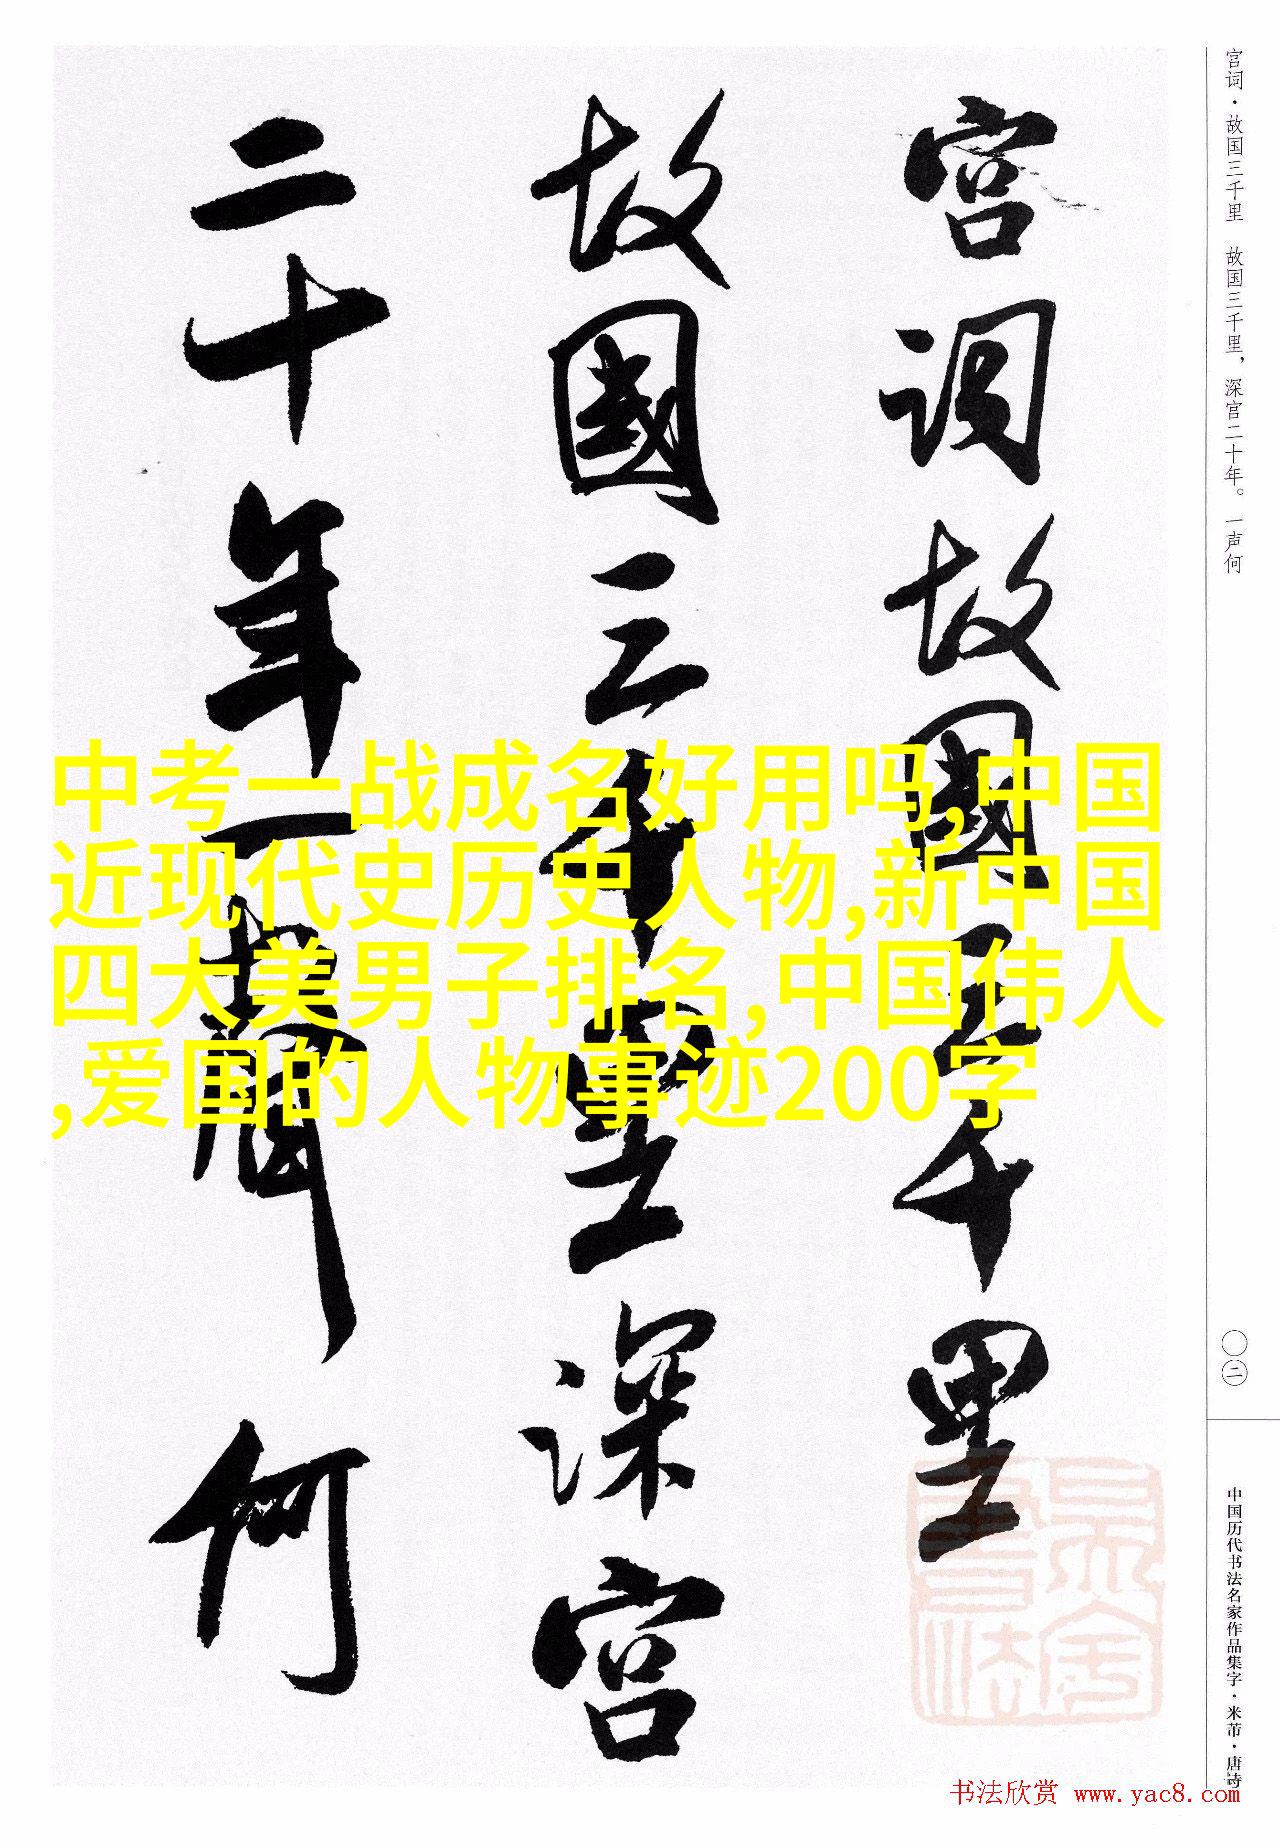 宫词·故国三千里 故国三千里，深宫二十年。一声何
宫詞故國三千里
故國三千里深宫
二十年一聲何
中考一战成名好用吗,中国
近现代史历史人物,新中国
四大美男子排名,中国伟人
,爱国的人物事迹200字
〇二
中国历代书法名家作品集字·米芾·唐诗
书法欣赏 www.yac8.com